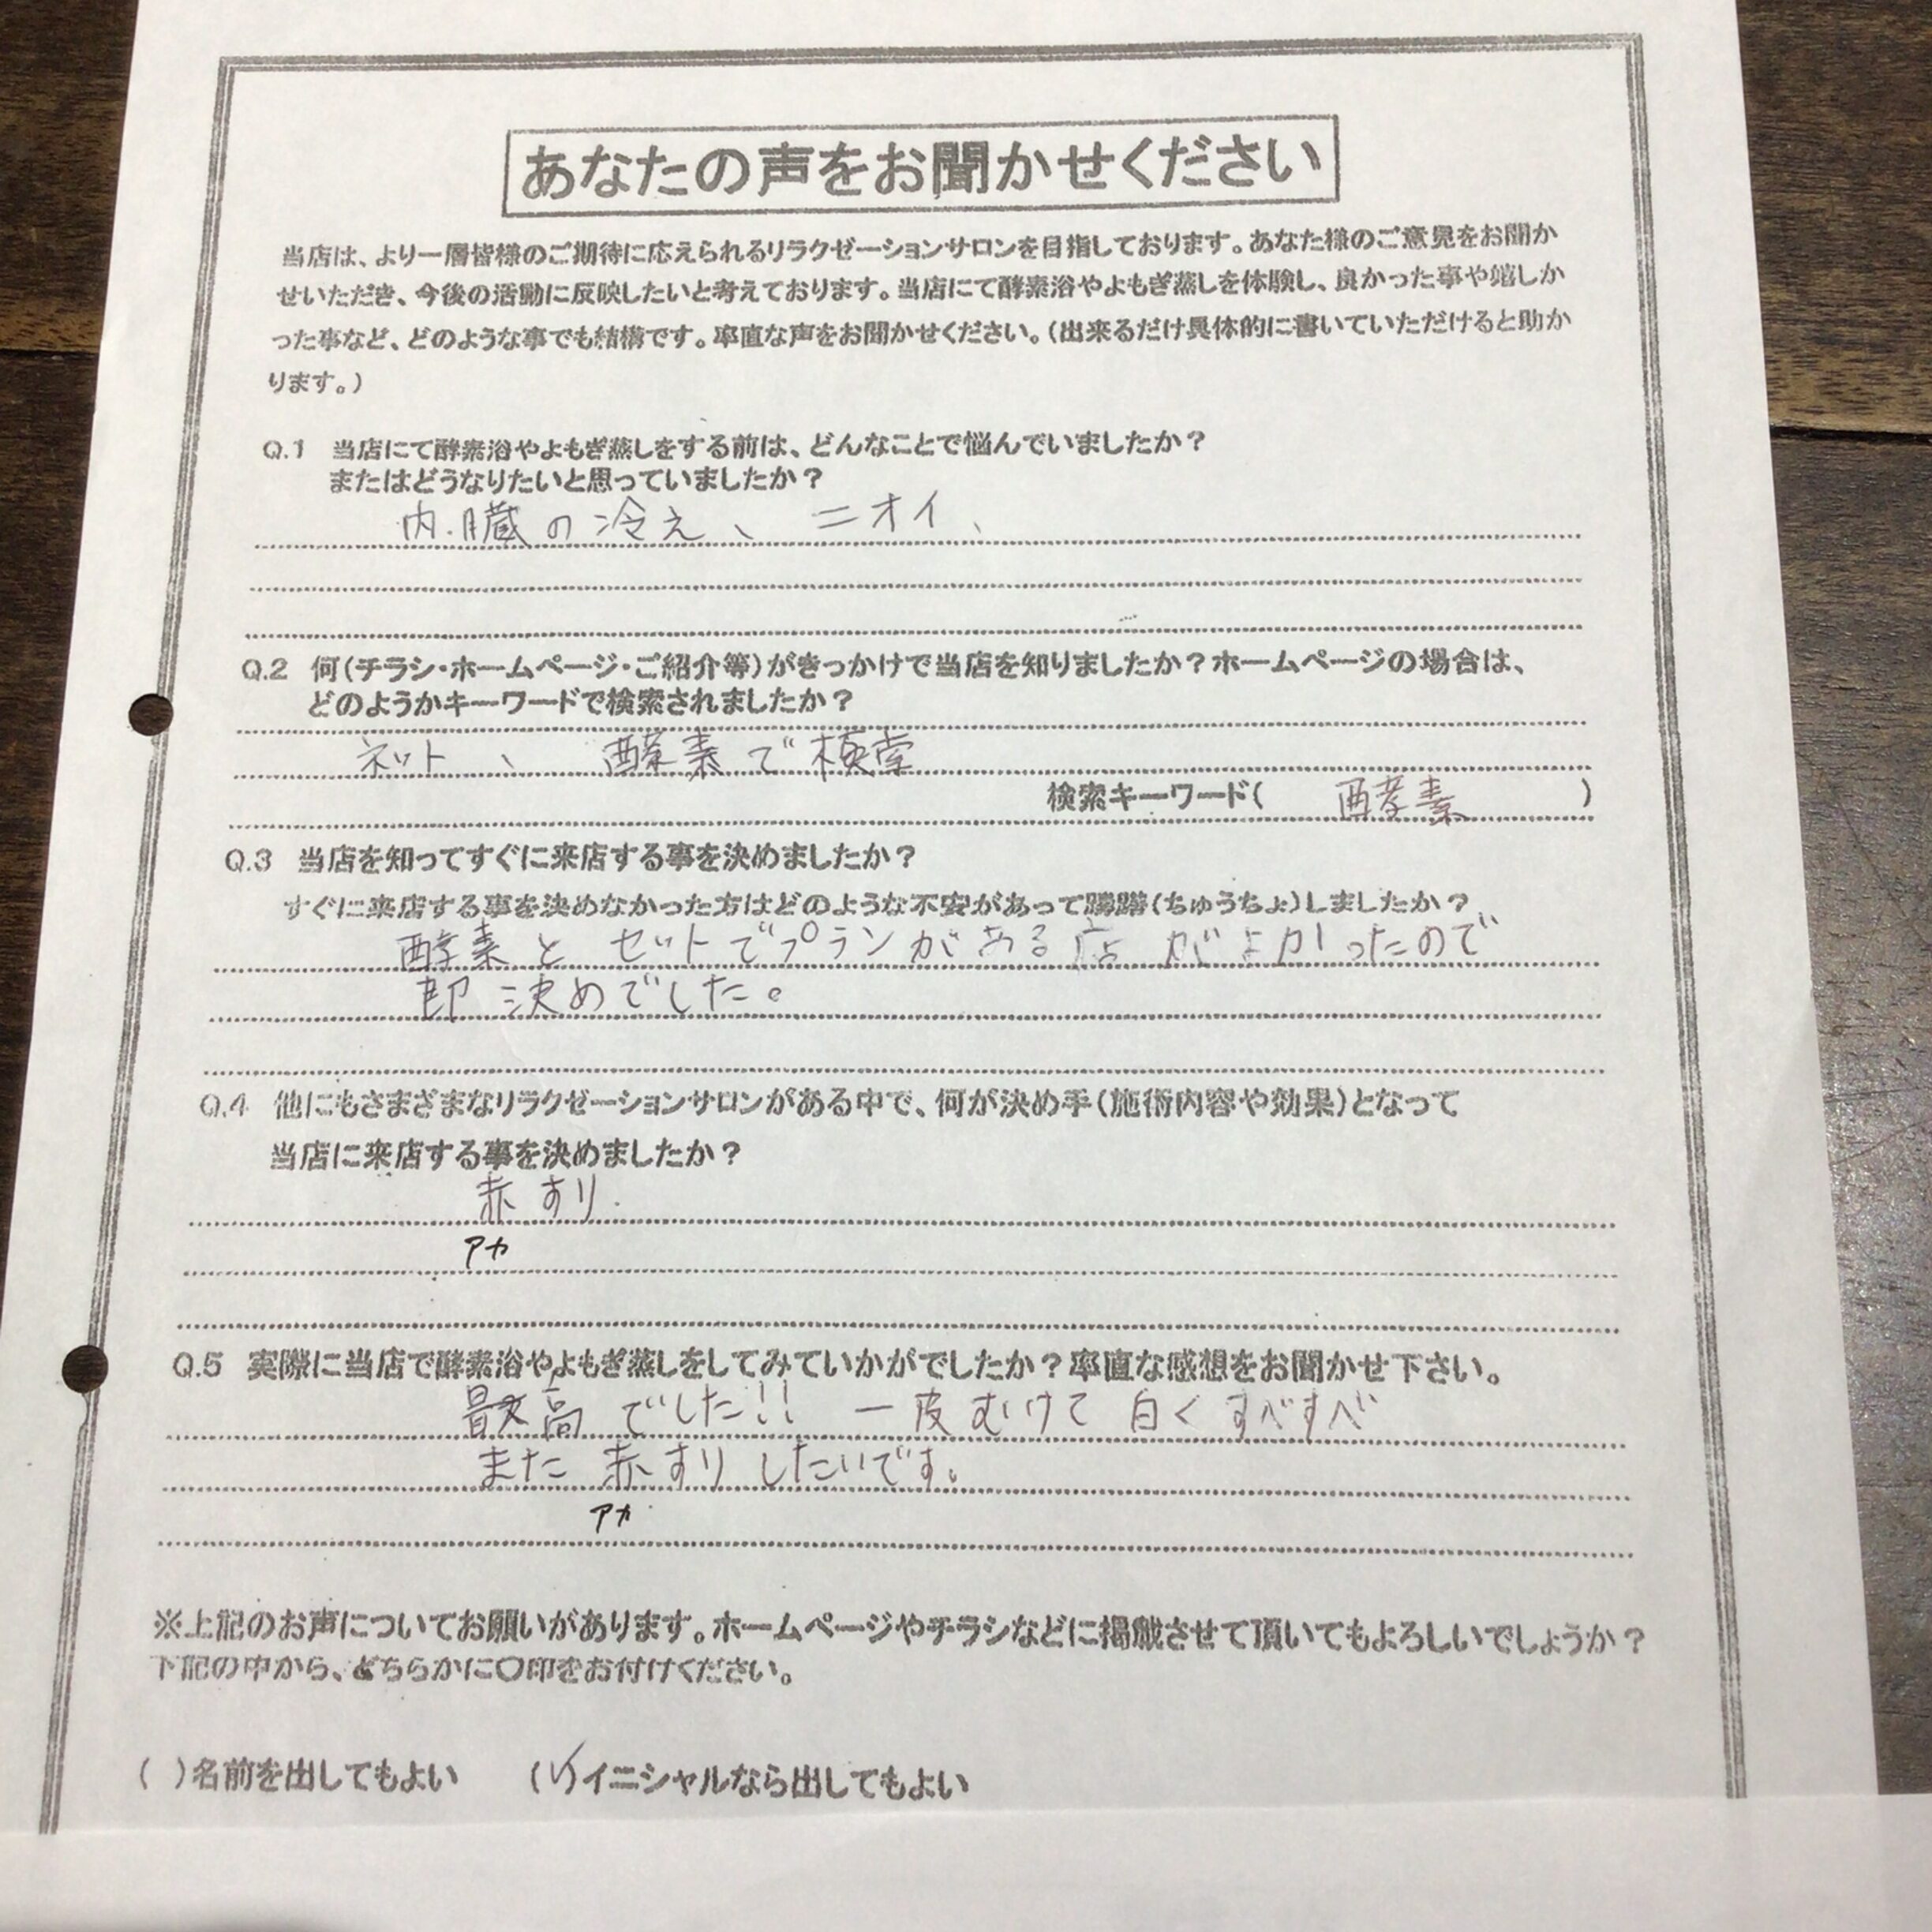 あなたの声をお聞かせください
当店は、より一層皆様のご期待に応えられるリラクゼーションサロンを目指しております。あなた様のご意見をお聞か
せいただき、今後の活動に反映したいと考えております。当店にて酵素浴やよもぎ蒸しを体験し、良かった事や嬉しか
った事など、どのような事でも結構です。率直な声をお聞かせください。(出来るだけ具体的に書いていただけると助か
ります。)
Q.1 当店にて酵素浴やよもぎ蒸しをする前は、どんなことで悩んでいましたか?
またはどうなりたいと思っていましたか?
内臓の冷え、ニオイ、
Q.2 何(チラシ・ホームページ・ご紹介等)がきっかけで当店を知りましたか?ホームページの場合は、
どのようかキーワードで検索されましたか?
ネット、酵素で検索
検索キーワード( 酵素 )
Q.3 当店を知ってすぐに来店する事を決めましたか?
すぐに来店する事を決めなかった方はどのような不安があって躊躇(ちゅうちょ)しましたか?
酵素とセットでプランがある店がよかったので
即決めでした。
Q.4 他にもさまざまなリラクゼーションサロンがある中で、何が決め手(施術内容や効果)となって
当店に来店する事を決めましたか?
赤すり.
アカ
Q.5 実際に当店で酵素浴やよもぎ蒸しをしてみていかがでしたか?率直な感想をお聞かせ下さい。
最高でした!! 一皮むけて白くすべすべ
また赤すりしたいです。
アカ
※上記のお声についてお願いがあります。ホームページやチラシなどに掲載させて頂いてもよろしいでしょうか?
下記の中から、どちらかに〇印をお付けください。
( )名前を出してもよい (✓)イニシャルなら出してもよい